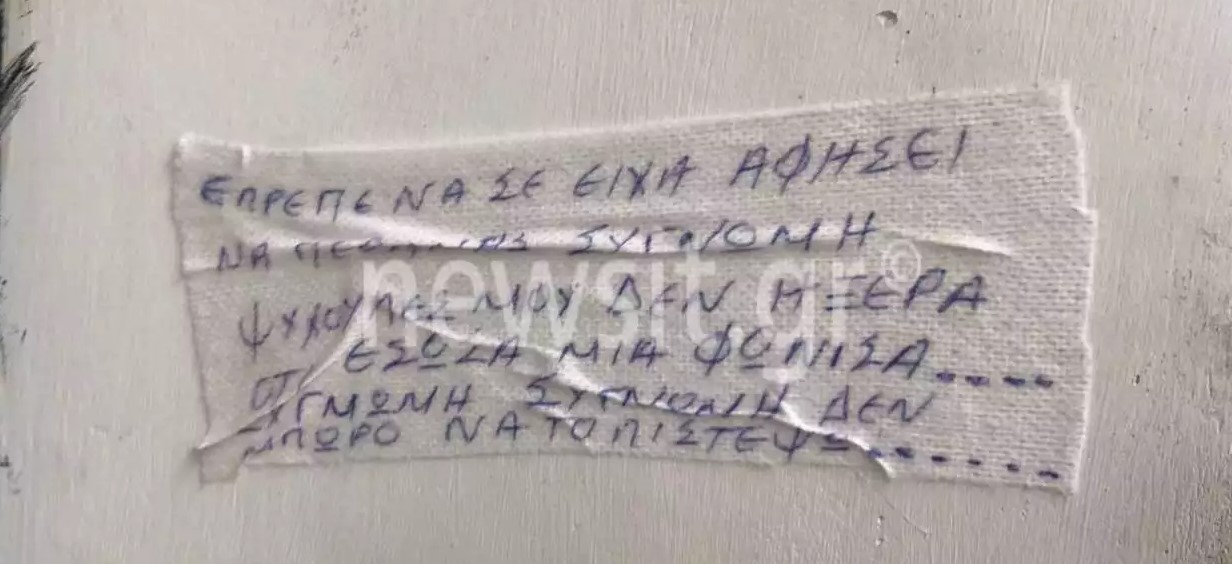 ΕΠΡΕΠΕ ΝΑ ΣΕ ΕΙΧΑ ΑΦΗΣΕΙ
ΝΑ ΣΥΓΝΩΜΗ
ΨΥΧΟΥΛΕΣ ΜΟΥ ΔΕΝ ΗΞΕΡΑ
ΟΤΙ ΕΣΩΣΑ ΜΙΑ ΦΩΝΙΣΑ....
ΣΥΓΝΩΜΗ ΔΕΝ
ΜΠΩΡΟ ΝΑ ΤΟ ΠΙΣΤΕΨΩ......
newsit.gr©